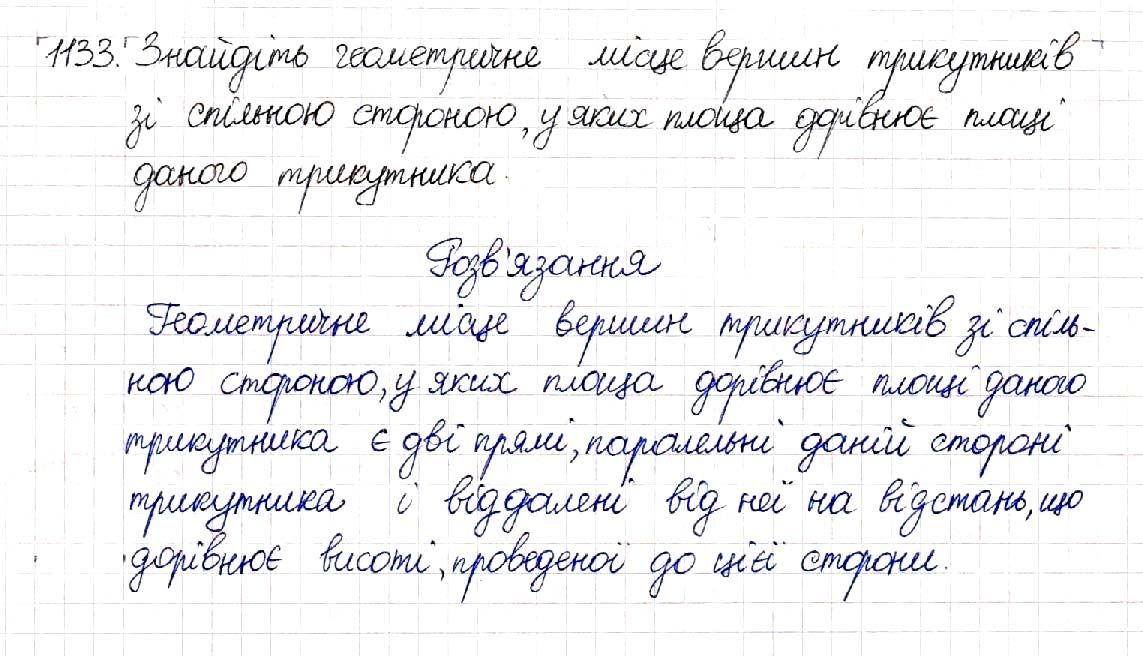 1133. Знайдіть геометричне місце вершин трикутників
зі спільною стороною, у яких площа дорівнює площі
даного трикутника.
Розв'язання
Геометричне місце вершин трикутників зі спіль-
ною стороною, у яких площа дорівнює площі даного
трикутника є дві прямі, паралельні даній стороні
трикутника і віддалені від неї на відстань, що
дорівнює висоті, проведеної до цієї сторони.